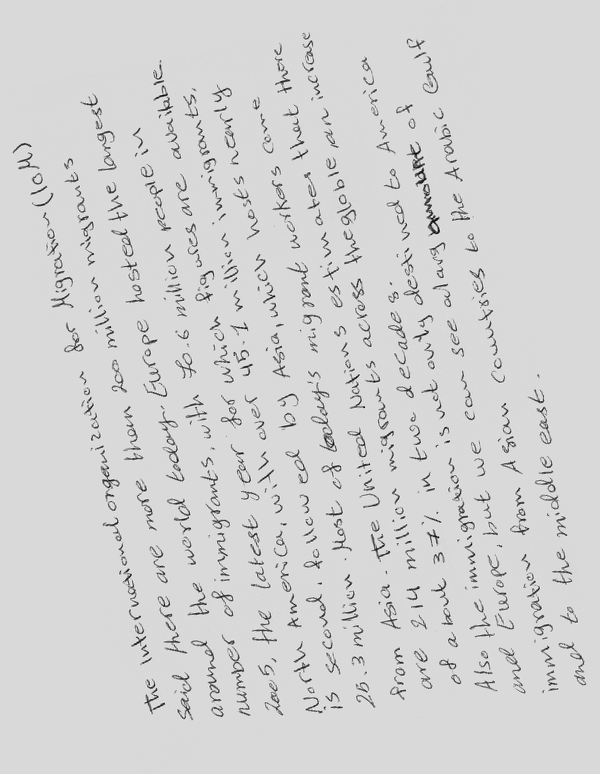 The International organization for Migration (IOM)
said there are more than 200 million migrants
around the world today. Europe hosted the largest
number of immigrants, with 70.6 million people in
2005, the latest year for which figures are available.
North America, with over 45.1 million immigrants,
is second, followed by Asia, which hosts nearly
25.3 million. Most of today's migrant workers come
from Asia. The United Nations estimates that there
are 214 million migrants across the globle an increase
of about 37% in two decades.
Also the immigration is not only destined to America
and Europe, but we can see a larg amount of
immigration from Asian countries to the Arabic Gulf
and to the middle east.